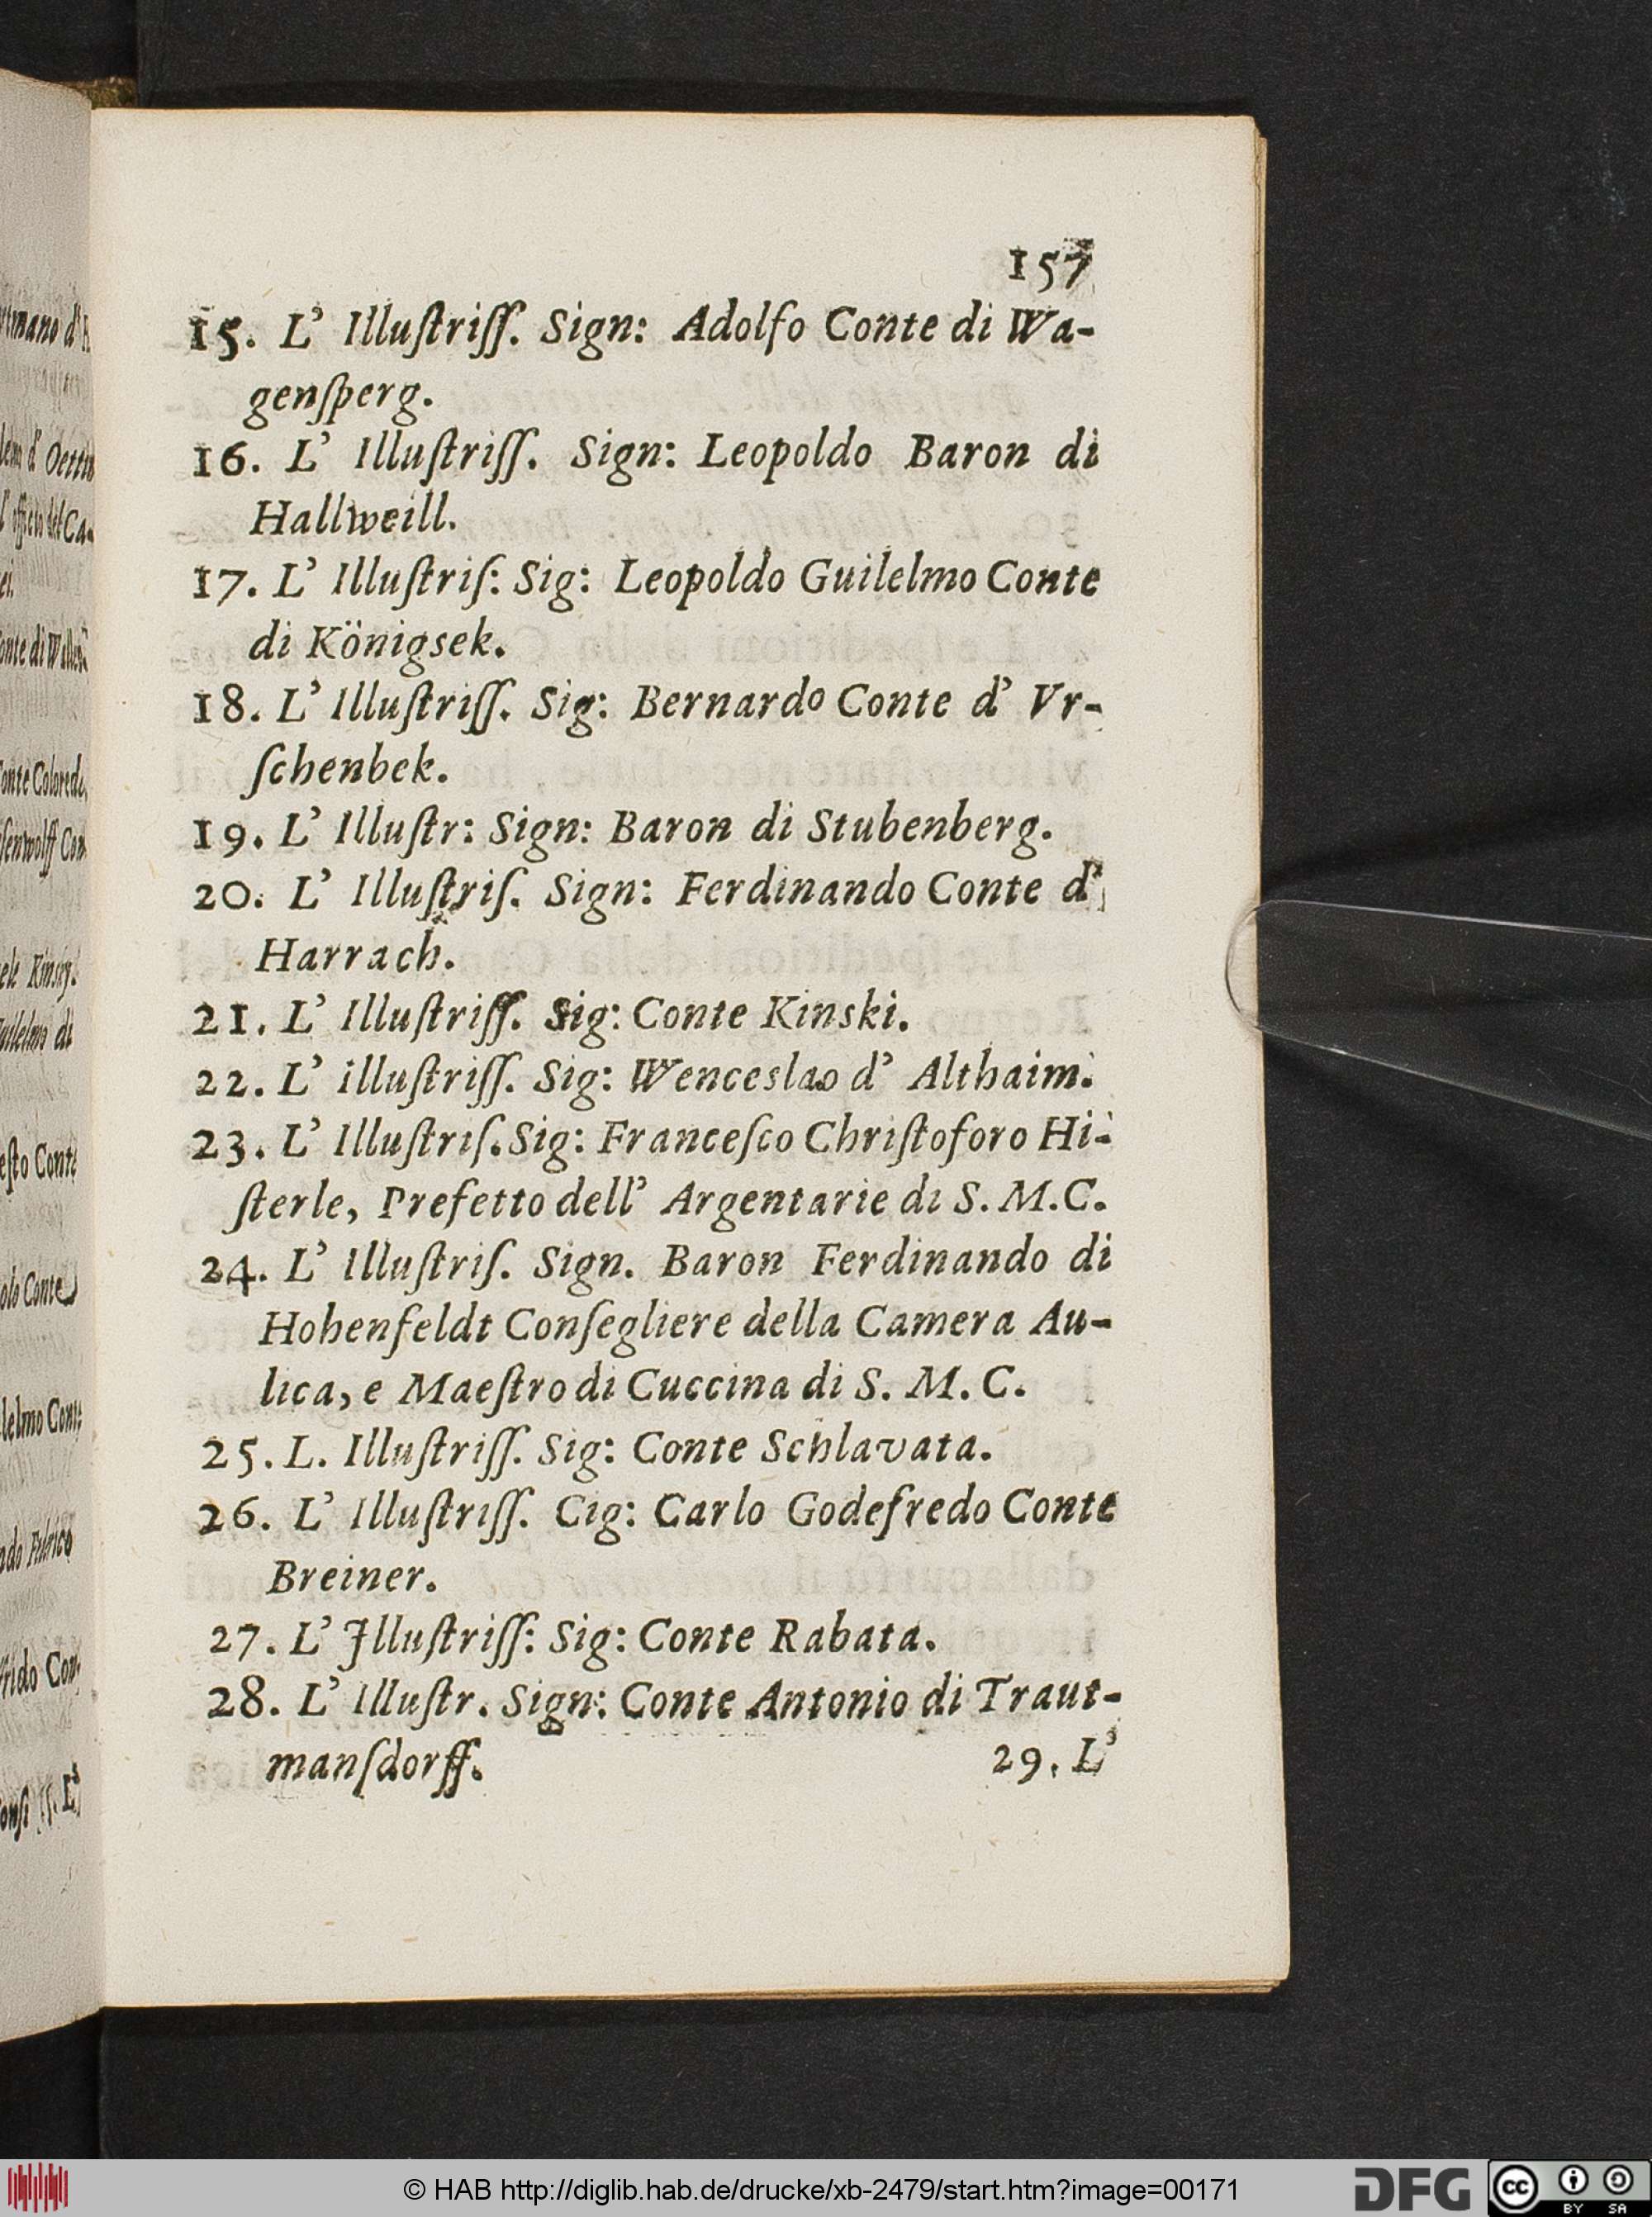 157
15. L' Illuſtriſſ. Sign: Adolfo Conte di Wa-
genſperg.
16. L' Illuſtriſſ. Sign: Leopoldo Baron di
Hallweill.
17. L' Illuſtriſ: Sig: Leopoldo Guilelmo Conte
di Königsek.
18. L' Illuſtriſſ. Sig: Bernardo Conte d' Vr-
ſchenbek.
19. L' Illuſtr: Sign: Baron di Stubenberg.
20. L' Illuſtriſ. Sign: Ferdinando Conte d'
Harrach.
21. L' Illuſtriſſ. Sig: Conte Kinski.
22. L' illuſtriſſ. Sig: Wenceslao d' Althaim.
23. L' Illuſtriſ. Sig: Franceſco Chriſtoforo Hi-
ſterle, Prefetto dell' Argentarie di S. M. C.
24. L' Illuſtriſ. Sign. Baron Ferdinando di
Hohenfeldt Conſegliere della Camera Au-
lica, e Maeſtro di Cuccina di S. M. C.
25. L. Illuſtriſſ. Sig: Conte Schlavata.
26. L' Illuſtriſſ. Cig: Carlo Godefredo Conte
Breiner.
27. L' Jlluſtriſſ: Sig: Conte Rabata.
28. L' Illuſtr. Sign: Conte Antonio di Traut-
manſdorff.
29. L'
© HAB http://diglib.hab.de/drucke/xb-2479/start.htm?image=00171
DFG
cc BY SA